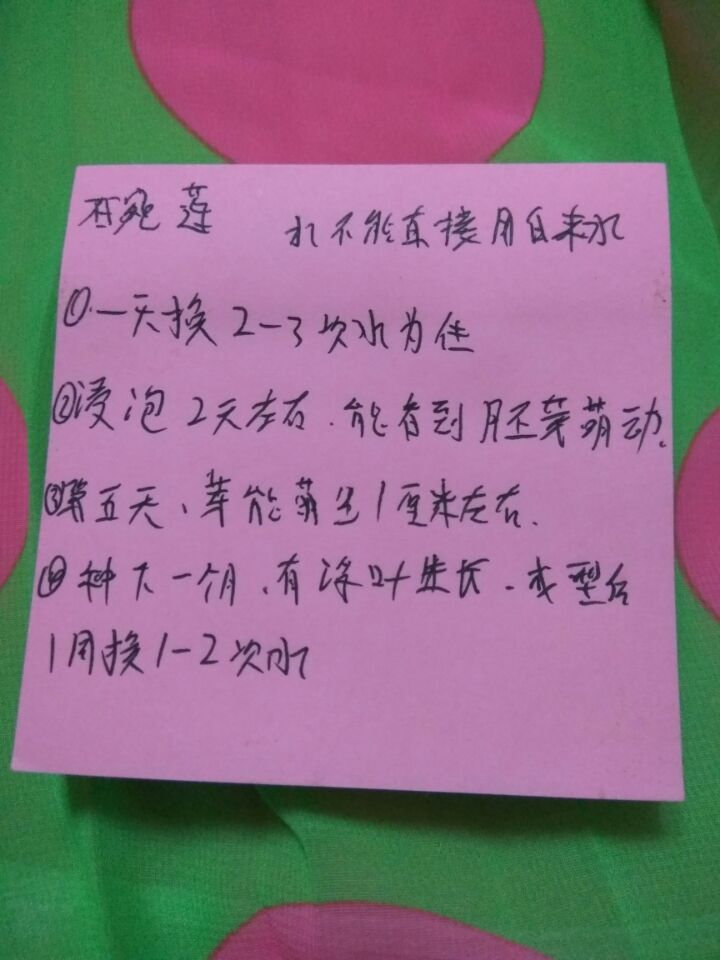 碗莲 水不能直接用自来水
①.一天换2-3次水为佳
②浸泡2天左右.能看到胚芽萌动.
③第五天、芽能萌出1厘米左右.
④种下一个月、有浮叶生长.成型后
1周换1-2次水